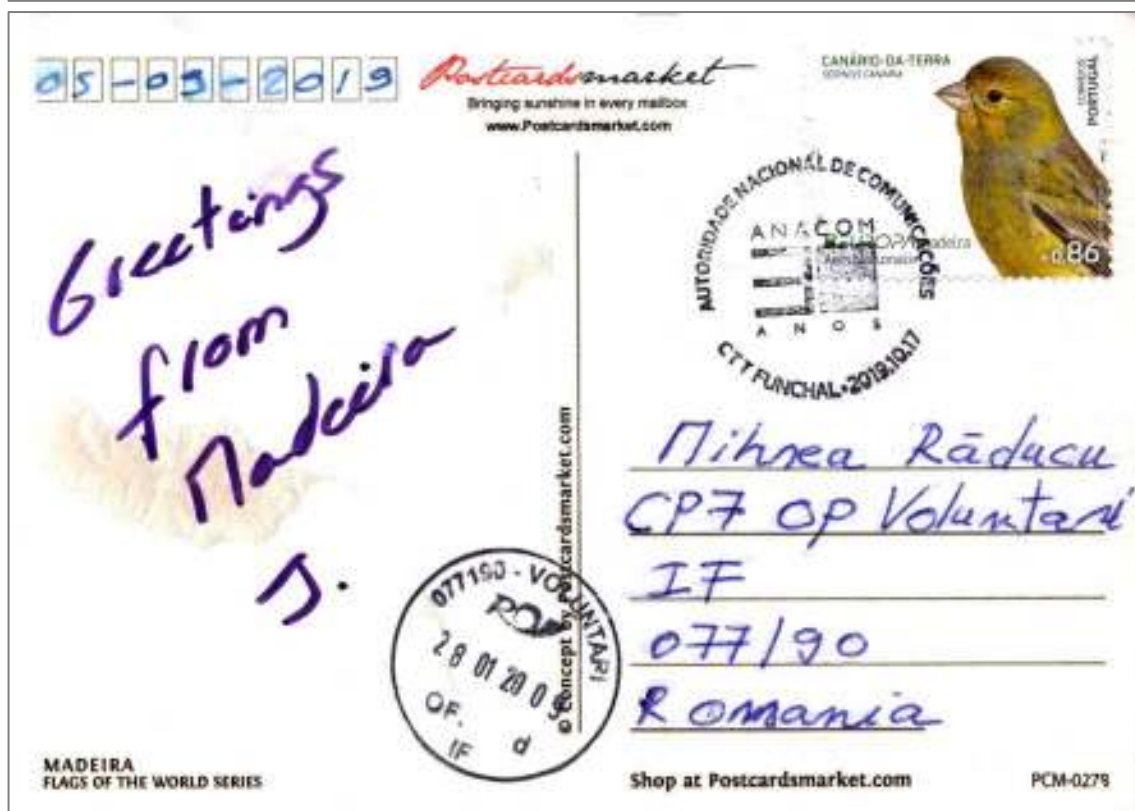 05-09-2019
Postcardsmarket
Bringing sunshine in every mailbox
www.Postcardsmarket.com
CANÁRIO-DA-TERRA
SERINUS CANARIA
PORTUGAL
EUROPA Madeira
0,86
AUTORIDADE NACIONAL DE COMUNICAÇÕES
ANACOM
ANOS
CTT FUNCHAL • 2019.10.17
Greetings
from
Madeira
J.
© Concept by Postcardsmarket.com
Mihnea Răducu
CP7 OP Voluntari
IF
077190
Romania
077190 - VOLUNTARI
28 01 20 09
OF.
IF d
MADEIRA
FLAGS OF THE WORLD SERIES
Shop at Postcardsmarket.com
PCM-0278